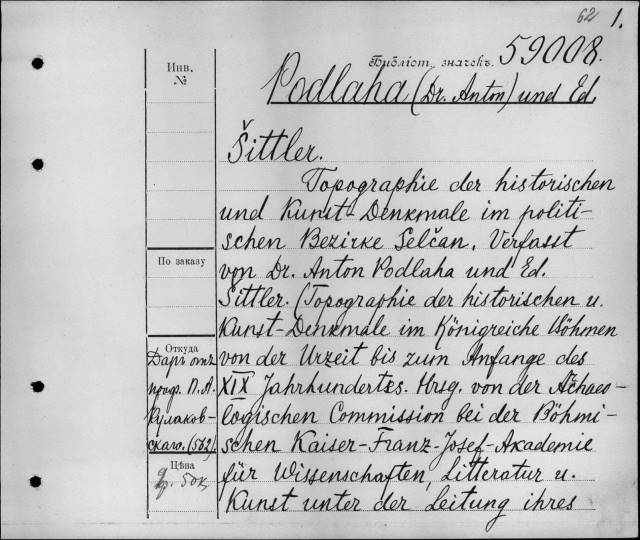 62 1.
Библіот. значекъ. 59008.
Инв.
№
Podlaha (Dr. Anton) und Ed.
Šittler.
Topographie der historischen
und Kunst-Denkmale im politi-
schen Bezirke Selčan. Verfasst
По заказу
von Dr. Anton Podlaha und Ed.
Šittler. (Topographie der historischen u.
Kunst-Denkmale im Königreiche Böhmen
Откуда
Даръ отъ
проф. П. А.
Кулаков-
скаго. (562)
von der Urzeit bis zum Anfange des
XIX Jahrhundertes. Hrsg. von der Achaeo-
logischen Commission bei der Böhmi-
schen Kaiser-Franz-Josef-Akademie
Цѣна
für Wissenschaften, Litteratur u.
Kunst unter der Leitung ihres